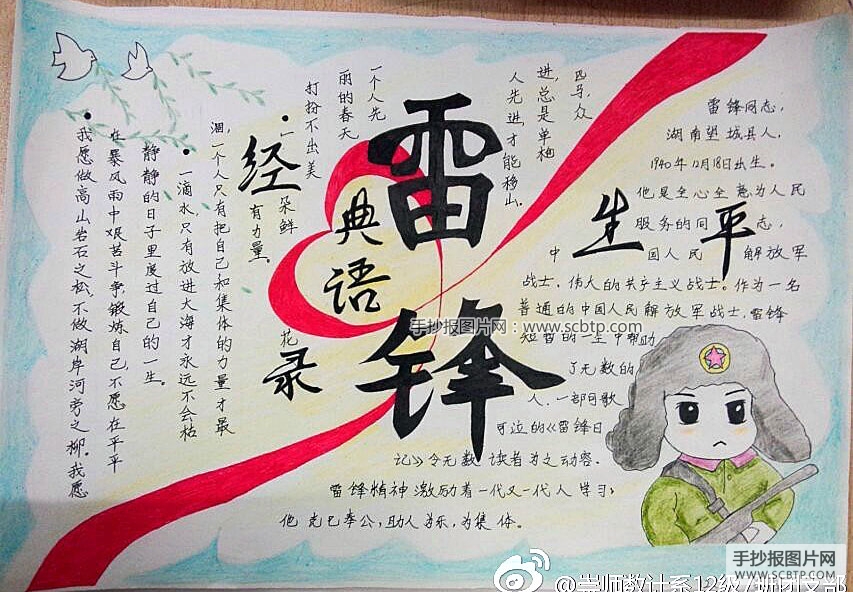 雷锋
经典语录
•我愿做高山岩石之松,不做湖岸河旁之柳。我愿
在暴风雨中艰苦斗争,锻炼自己,不愿在平平
静静的日子里度过自己的一生。
•一滴水,只有放进大海才永远不会枯
涸,一个人只有把自己和集体的力量才最
有力量。
•一朵鲜花
打扮不出美
丽的春天
一个人先
进,总是单枪
匹马,众
人先进,才能移山。
生平
雷锋同志,
湖南望城县人,
1940年12月18日出生。
他是全心全意为人民
服务的同志,
中国人民解放军
战士,伟人的共产主义战士。作为一名
普通的中国人民解放军战士,雷锋
短暂的一生中帮助
了无数的
人.一部可歌
可泣的《雷锋日
记》令无数读者为之动容.
雷锋精神激励着一代又一代人学习;
他克已奉公,助人为乐,为集体.
手抄报图片网:www.scbtp.com
手抄报图片网
WWW.SCBTP.COM
@崇师数计系12级7班团支部